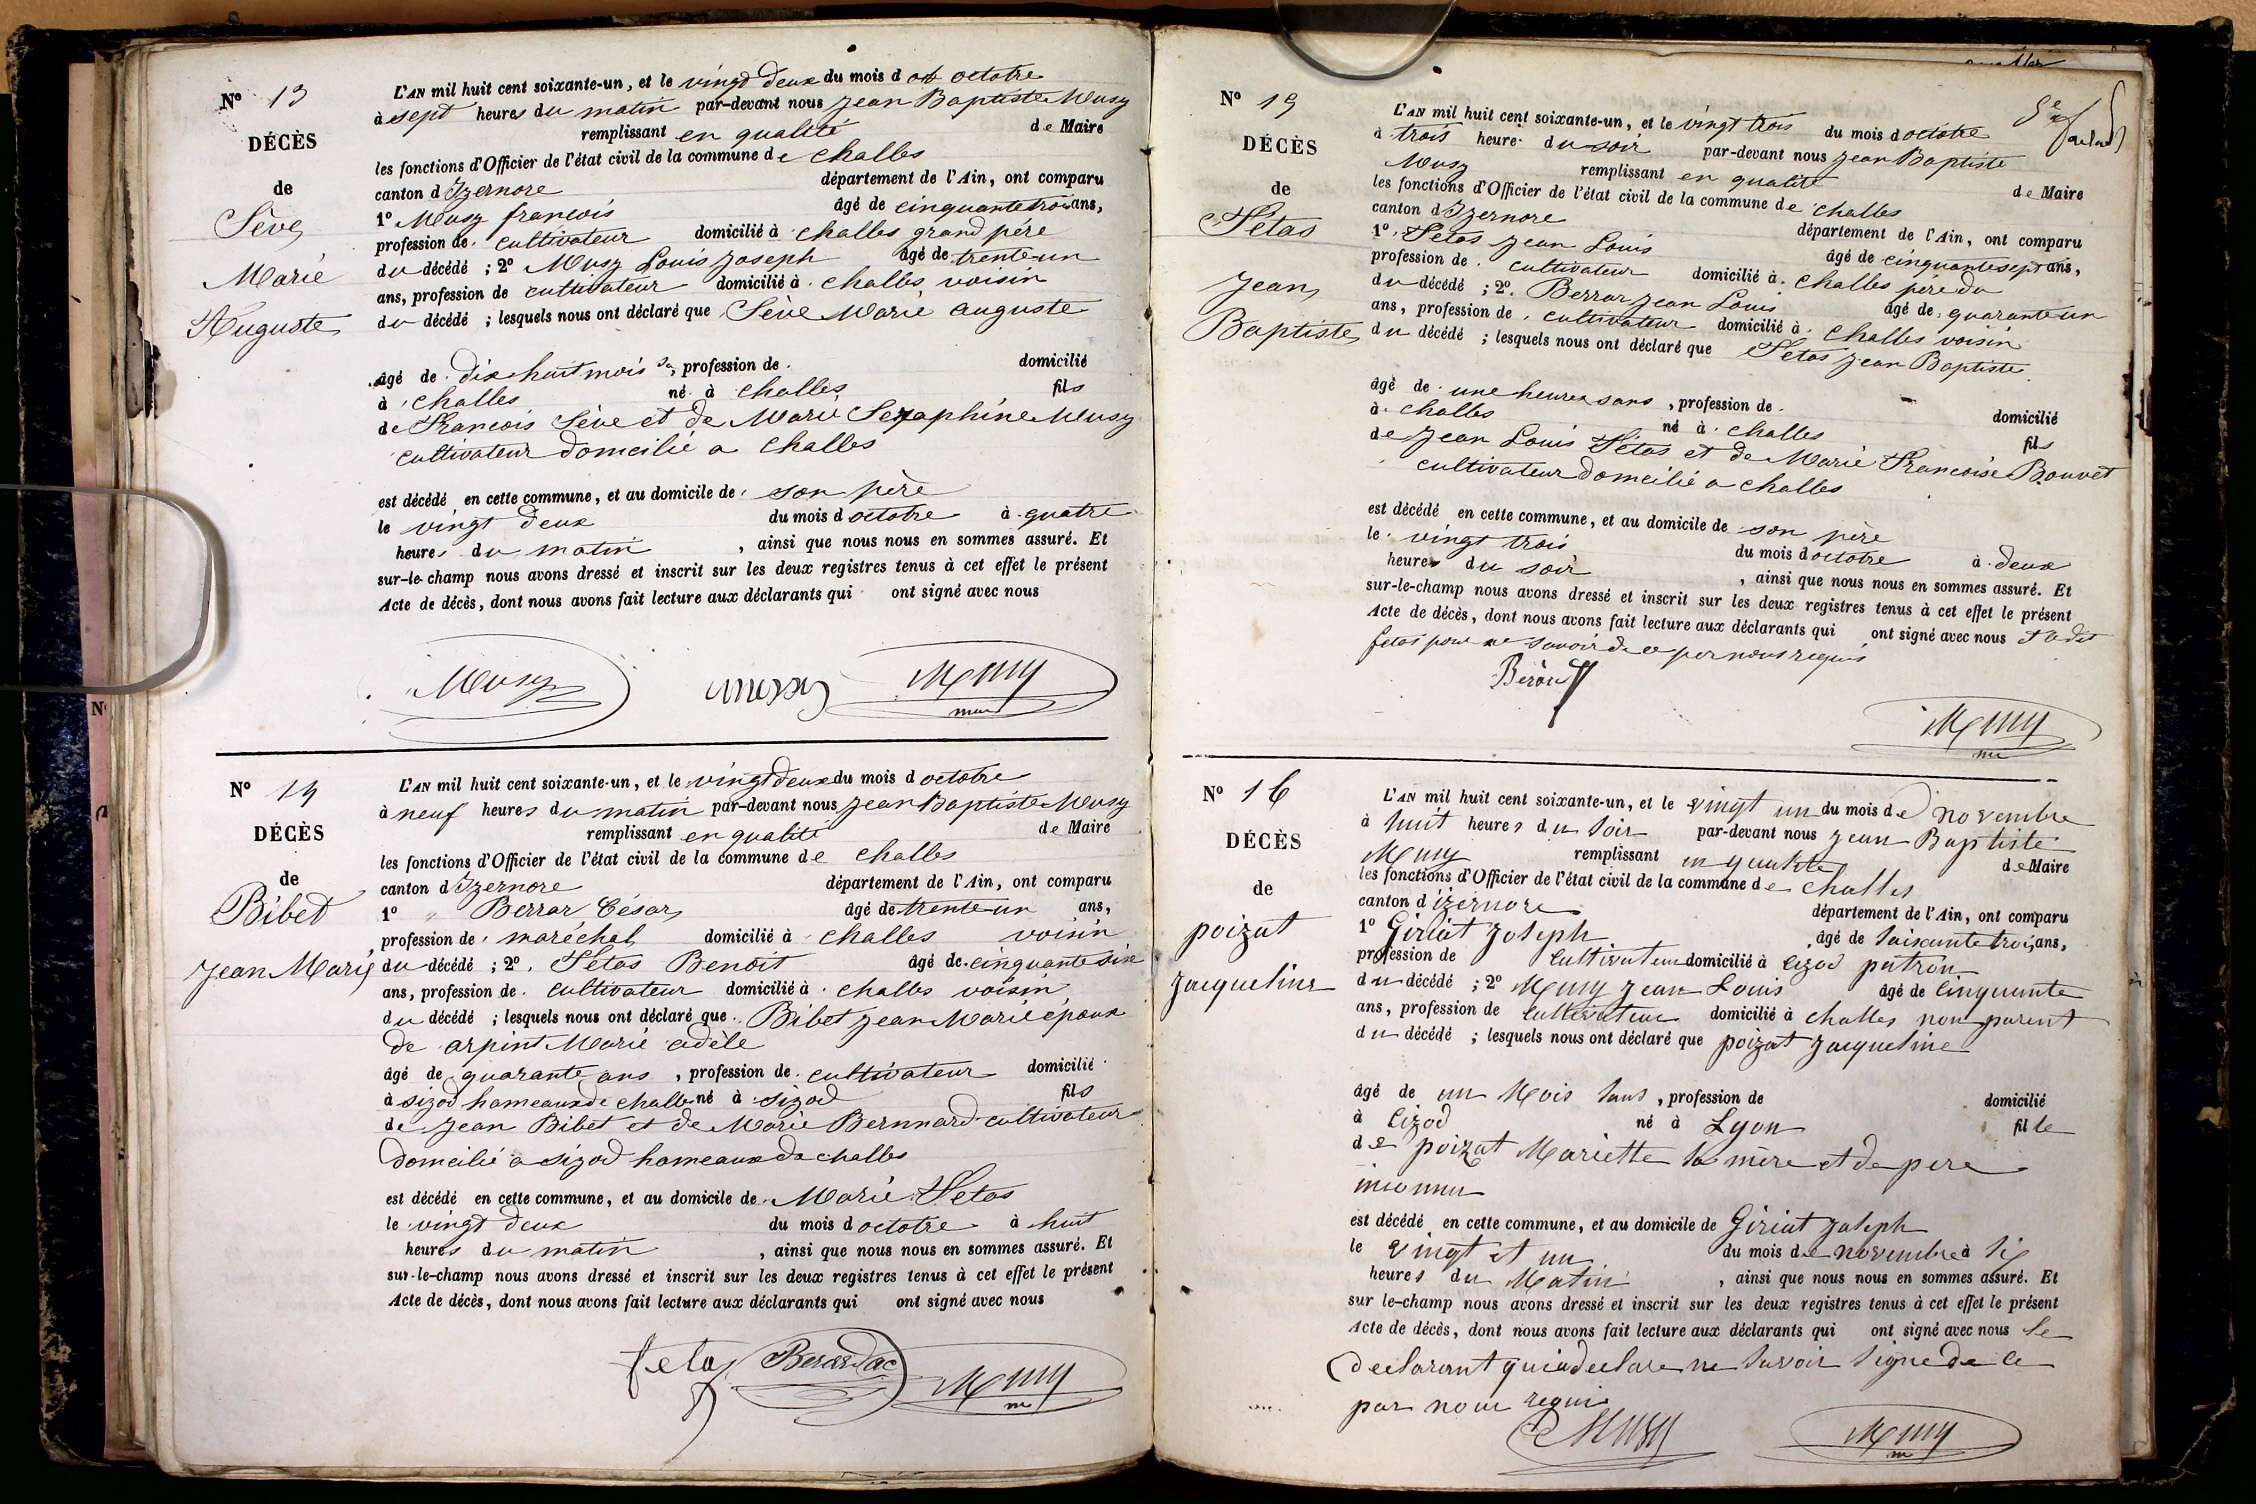 Nº 13
DÉCÈS
de
Sève
Marie
Auguste
L'AN mil huit cent soixante-un, et le vingt deux du mois d octobre
à sept heures du matin par-devant nous Jean Baptiste Musy
remplissant en qualité de Maire
les fonctions d'Officier de l'état civil de la commune de Challes
canton d Izernore département de l'Ain, ont comparu
1º Musy francois âgé de cinquante trois ans,
profession de cultivateur domicilié à Challes grand père
du décédé ; 2º Musy Louis Joseph âgé de trente un
ans, profession de cultivateur domicilié à challes voisin
du décédé ; lesquels nous ont déclaré que Sève Marie auguste
âgé de dix huit mois , profession de domicilié
à challes né à challes fils
de Francois Sève et de Marie Seraphine Musy
cultivateur domcilié a challes
est décédé en cette commune, et au domicile de son père
le vingt deux du mois d octobre à quatre
heures du matin , ainsi que nous nous en sommes assuré. Et
sur-le-champ nous avons dressé et inscrit sur les deux registres tenus à cet effet le présent
Acte de décès, dont nous avons fait lecture aux déclarants qui ont signé avec nous
Musy Musy
Nº 14
DÉCÈS
de
Bibet
Jean Marie
L'AN mil huit cent soixante-un, et le vingt deux du mois d octobre
à neuf heures du matin par-devant nous Jean Baptiste Musy
remplissant en qualité de Maire
les fonctions d'Officier de l'état civil de la commune de challes
canton d Izernore département de l'Ain, ont comparu
1º Berrar César âgé de trente un ans,
profession de maréchal domicilié à challes voisin
du décédé ; 2º Fetas Benoit âgé de cinquante six
ans, profession de cultivateur domicilié à challes voisin
du décédé ; lesquels nous ont déclaré que Bibet Jean Marie époux
de arpint Marie adèle
âgé de quarante ans , profession de cultivateur domicilié
à sizod hameaux de challe né à sizod fils
de Jean Bibet et de Marie Bernnard cultivateur
domcilié a sizod hameaux de challes
est décédé en cette commune, et au domicile de Marie Fetas
le vingt deux du mois d octobre à huit
heures du matin , ainsi que nous nous en sommes assuré. Et
sur-le-champ nous avons dressé et inscrit sur les deux registres tenus à cet effet le présent
Acte de décès, dont nous avons fait lecture aux déclarants qui ont signé avec nous
fetas Musy
Nº 15
DÉCÈS
de
Fétas
Jean
Baptiste
L'AN mil huit cent soixante-un, et le vingt trois du mois d octobre
à trois heure du soir par-devant nous Jean Baptiste
Musy remplissant en qualité de Maire
les fonctions d'Officier de l'état civil de la commune de challes
canton d Izernore département de l'Ain, ont comparu
1º Fetas Jean Louis âgé de cinquante sept ans,
profession de cultivateur domicilié à challes père du
du décédé ; 2º Berrar Jean Louis âgé de quarante un
ans, profession de cultivateur domicilié à challes voisin
du décédé ; lesquels nous ont déclaré que Fetas Jean Baptiste
âgé de une heure sans , profession de domicilié
à challes né à challes fils
de Jean Louis Fétas et de Marie Francoise Bouvet
cultivateur domcilié a challes
est décédé en cette commune, et au domicile de son père
le vingt trois du mois d octobre à deux
heures du soir , ainsi que nous nous en sommes assuré. Et
sur-le-champ nous avons dressé et inscrit sur les deux registres tenus à cet effet le présent
Acte de décès, dont nous avons fait lecture aux déclarants qui ont signé avec nous
fetas pour ne savoir de ce par nous requis
Musy
Nº 16
DÉCÈS
de
poizat
Jacqueline
L'AN mil huit cent soixante-un, et le vingt un du mois de novembre
à huit heures du soir par-devant nous jean Baptiste
Musy remplissant en qualité de Maire
les fonctions d'Officier de l'état civil de la commune de challes
canton d izernore département de l'Ain, ont comparu
1º Giriat Joseph âgé de soixante trois ans,
profession de cultivateur domicilié à cizod patron
du décédé ; 2º Musy Jean Louis âgé de cinquante
ans, profession de cultivateur domicilié à challes non parent
du décédé ; lesquels nous ont déclaré que poizat Jacqueline
âgé de un Mois sans , profession de domicilié
à Cizod né à Lyon fille
de poizat Mariette sa mere et de pere
inconnu
est décédé en cette commune, et au domicile de Giriat Joseph
le vingt et un du mois de novembre à six
heures du Matin , ainsi que nous nous en sommes assuré. Et
sur le-champ nous avons dressé et inscrit sur les deux registres tenus à cet effet le présent
Acte de décès, dont nous avons fait lecture aux déclarants qui ont signé avec nous le
declarant qui a declare ne savoir signe de ce
par nous requis
Musy Musy